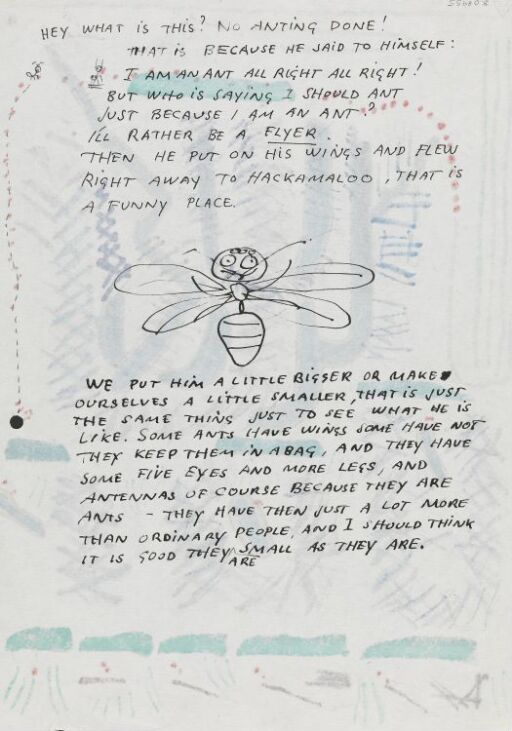 HEY WHAT IS THIS? NO ANTING DONE!
THAT IS BECAUSE HE SAID TO HIMSELF:
I AM AN ANT ALL RIGHT ALL RIGHT!
BUT WHO IS SAYING I SHOULD ANT
JUST BECAUSE I AM AN ANT?
I'LL RATHER BE A FLYER.
THEN HE PUT ON HIS WINGS AND FLEW
RIGHT AWAY TO HACKAMALOO, THAT IS
A FUNNY PLACE.
WE PUT HIM A LITTLE BIGGER OR MAKE
OURSELVES A LITTLE SMALLER, THAT IS JUST
THE SAME THING JUST TO SEE WHAT HE IS
LIKE. SOME ANTS HAVE WINGS SOME HAVE NOT
THEY KEEP THEM IN A BAG, AND THEY HAVE
SOME FIVE EYES AND MORE LEGS, AND
ANTENNAS OF COURSE BECAUSE THEY ARE
ANTS - THEY HAVE THEN JUST A LOT MORE
THAN ORDINARY PEOPLE, AND I SHOULD THINK
IT IS GOOD THEY ARE SMALL AS THEY ARE.